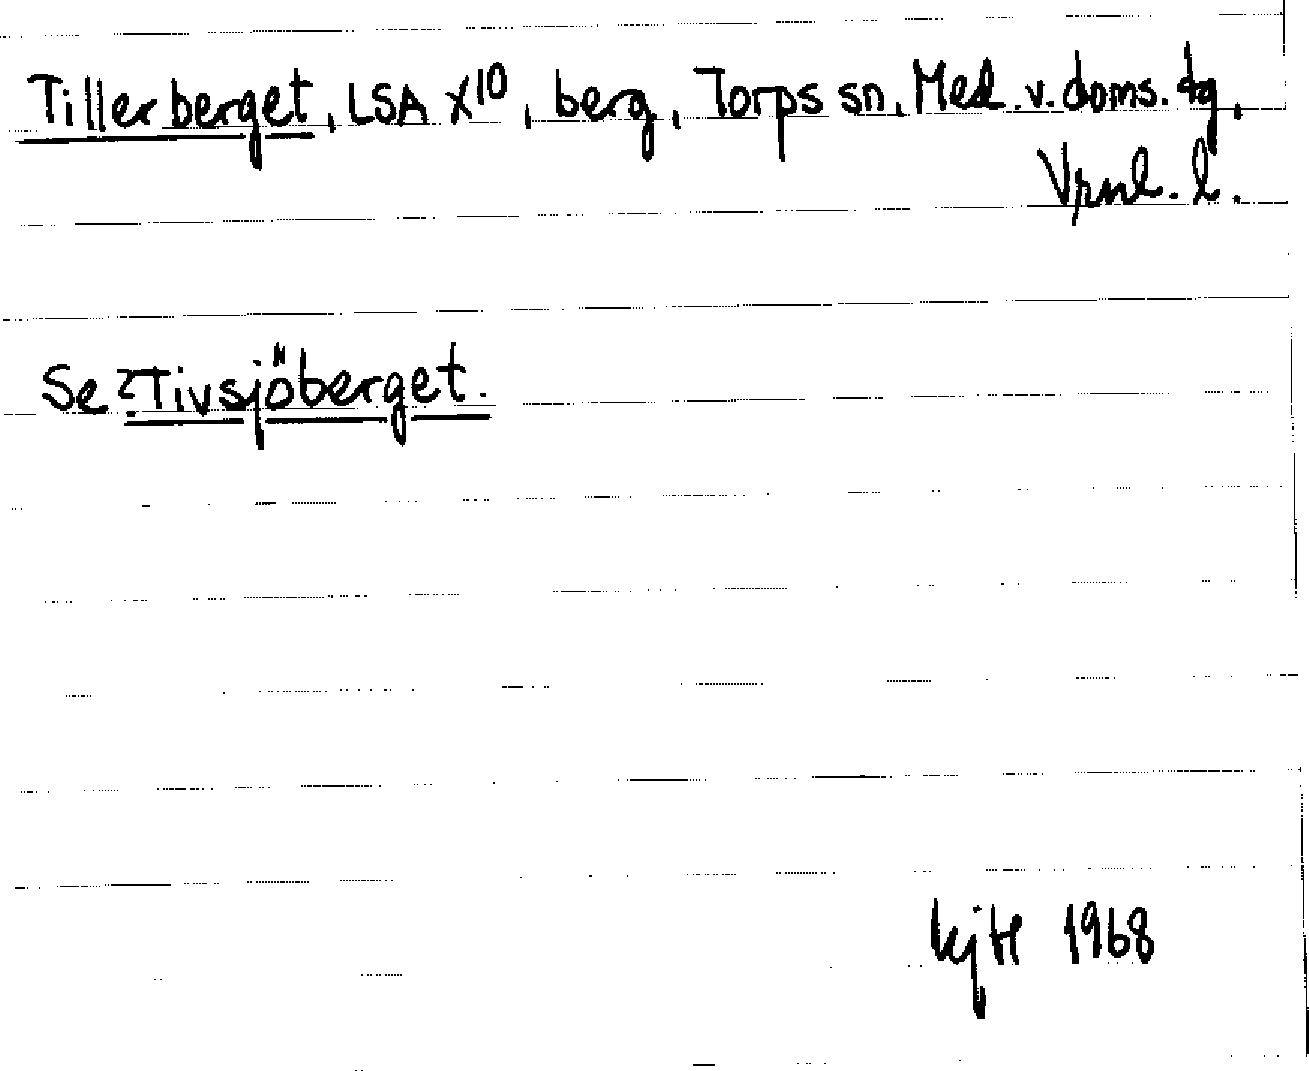 Tillerberget, LSA X10, berg, Torps sn, Med. v. doms. dg,
Vrnl. l.
Se ?Tivsjöberget.
kjH 1968